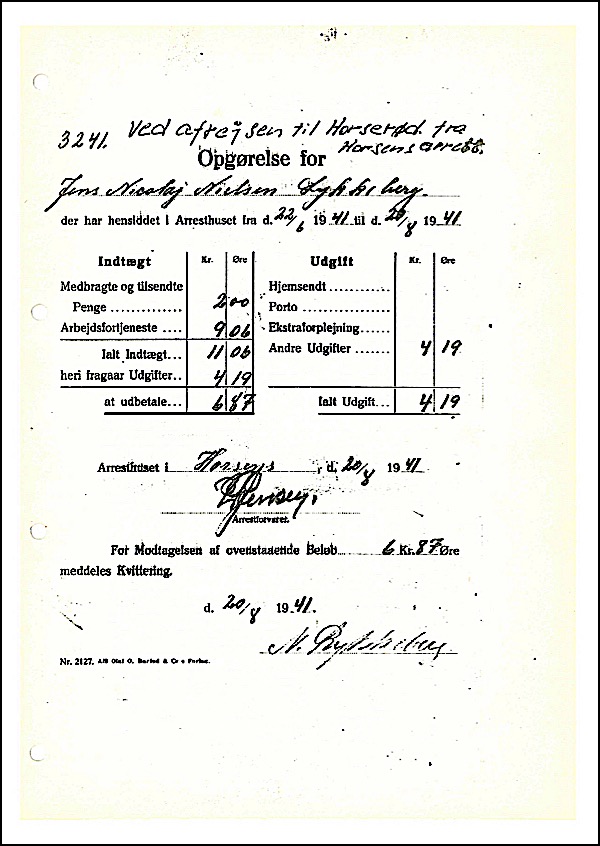 3241. Ved afrejsen til Horserød fra
Horsens arrest.
Opgørelse for
Jens Nicolaj Nielsen Lykkeberg.
der har hensiddet i Arresthuset fra d. 22/6 1941 til d. 20/8 1941
Indtægt Kr. Øre Udgift Kr. Øre
Medbragte og tilsendte Hjemsendt
Penge 2 00 Porto
Arbejdsfortjeneste 9 06 Ekstraforplejning
Ialt Indtægt 11 06 Andre Udgifter 4 19
heri fragaar Udgifter 4 19
at udbetale 6 87 Ialt Udgift 4 19
Arresthuset i Horsens, d. 20/8 1941
Jensen.
Arrestforvarer.
For Modtagelsen af ovenstaaende Beløb 6 Kr. 87 Øre
meddeles Kvittering.
d. 20/8 1941.
N. Lykkeberg
Nr. 2127. A/S Olaf O. Barfod & Co s Forlag.